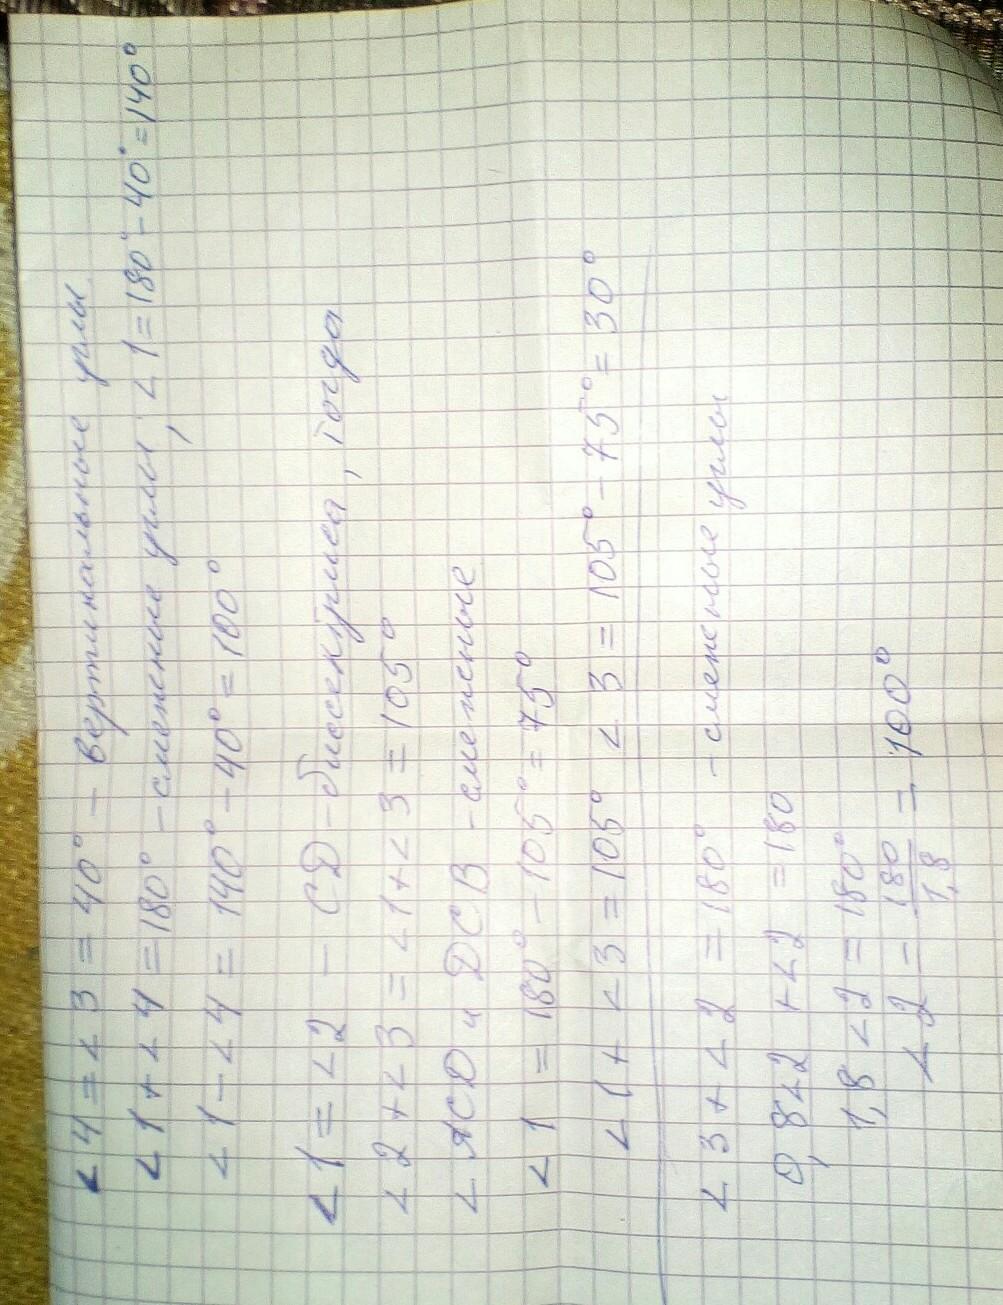 ∠4 = ∠3 = 40° – вертикальные углы
∠1 + ∠4 = 180° – смежные углы, ∠1 = 180° – 40° = 140°
∠1 – ∠4 = 140° – 40° = 100°
∠1 = ∠2 – СД – биссектриса, тогда
∠2 + ∠3 = ∠1 + ∠3 = 105°
∠АСД и ДСВ – смежные
∠1 = 180° – 105° = 75°
∠1 + ∠3 = 105° ∠3 = 105° – 75° = 30°
∠3 + ∠2 = 180° – смежные углы
0,8∠2 + ∠2 = 180
1,8∠2 = 180°
∠2 – 180/1,8 = 100°